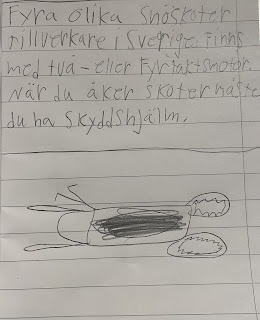 Fyra olika Snöskoter
tillverkare i Sverige. Finns
med två- eller Fyrtaktsmotor
När du åker skoter måste
du ha Skyddshjälm.